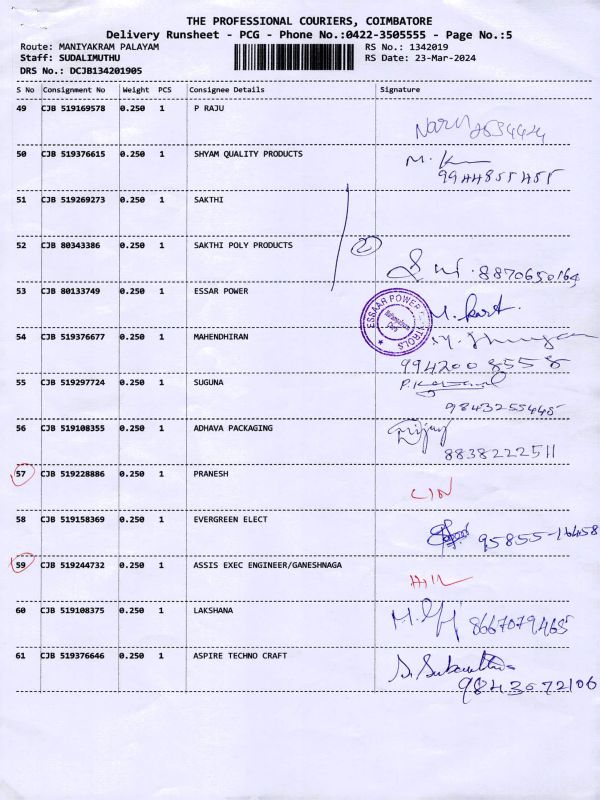 THE PROFESSIONAL COURIERS, COIMBATORE
Delivery Runsheet - PCG - Phone No.:0422-3505555 - Page No.:5
Route: MANIYAKRAM PALAYAM RS No.: 1342019
Staff: SUDALIMUTHU RS Date: 23-Mar-2024
DRS No.: DCJB134201905
S No Consignment No Weight PCS Consignee Details Signature
49 CJB 519169578 0.250 1 P RAJU
50 CJB 519376615 0.250 1 SHYAM QUALITY PRODUCTS
9944855455
51 CJB 519269273 0.250 1 SAKTHI
52 CJB 80343386 0.250 1 SAKTHI POLY PRODUCTS 2
8870650164
53 CJB 80133749 0.250 1 ESSAR POWER
ESSAAR POWER CONTROLS
54 CJB 519376677 0.250 1 MAHENDHIRAN
9942008558
55 CJB 519297724 0.250 1 SUGUNA
9843255445
56 CJB 519108355 0.250 1 ADHAVA PACKAGING
8838222511
57 CJB 519228886 0.250 1 PRANESH
58 CJB 519158369 0.250 1 EVERGREEN ELECT
95855-16458
59 CJB 519244732 0.250 1 ASSIS EXEC ENGINEER/GANESHNAGA
60 CJB 519108375 0.250 1 LAKSHANA
8667079465
61 CJB 519376646 0.250 1 ASPIRE TECHNO CRAFT
9843072106